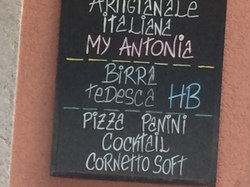 ARTIGIANALE
ITALIANA
MY ANTONIA
BIRRA
TEDESCA HB
PIZZA PANINI
COCKTAIL
CORNETTO SOFT